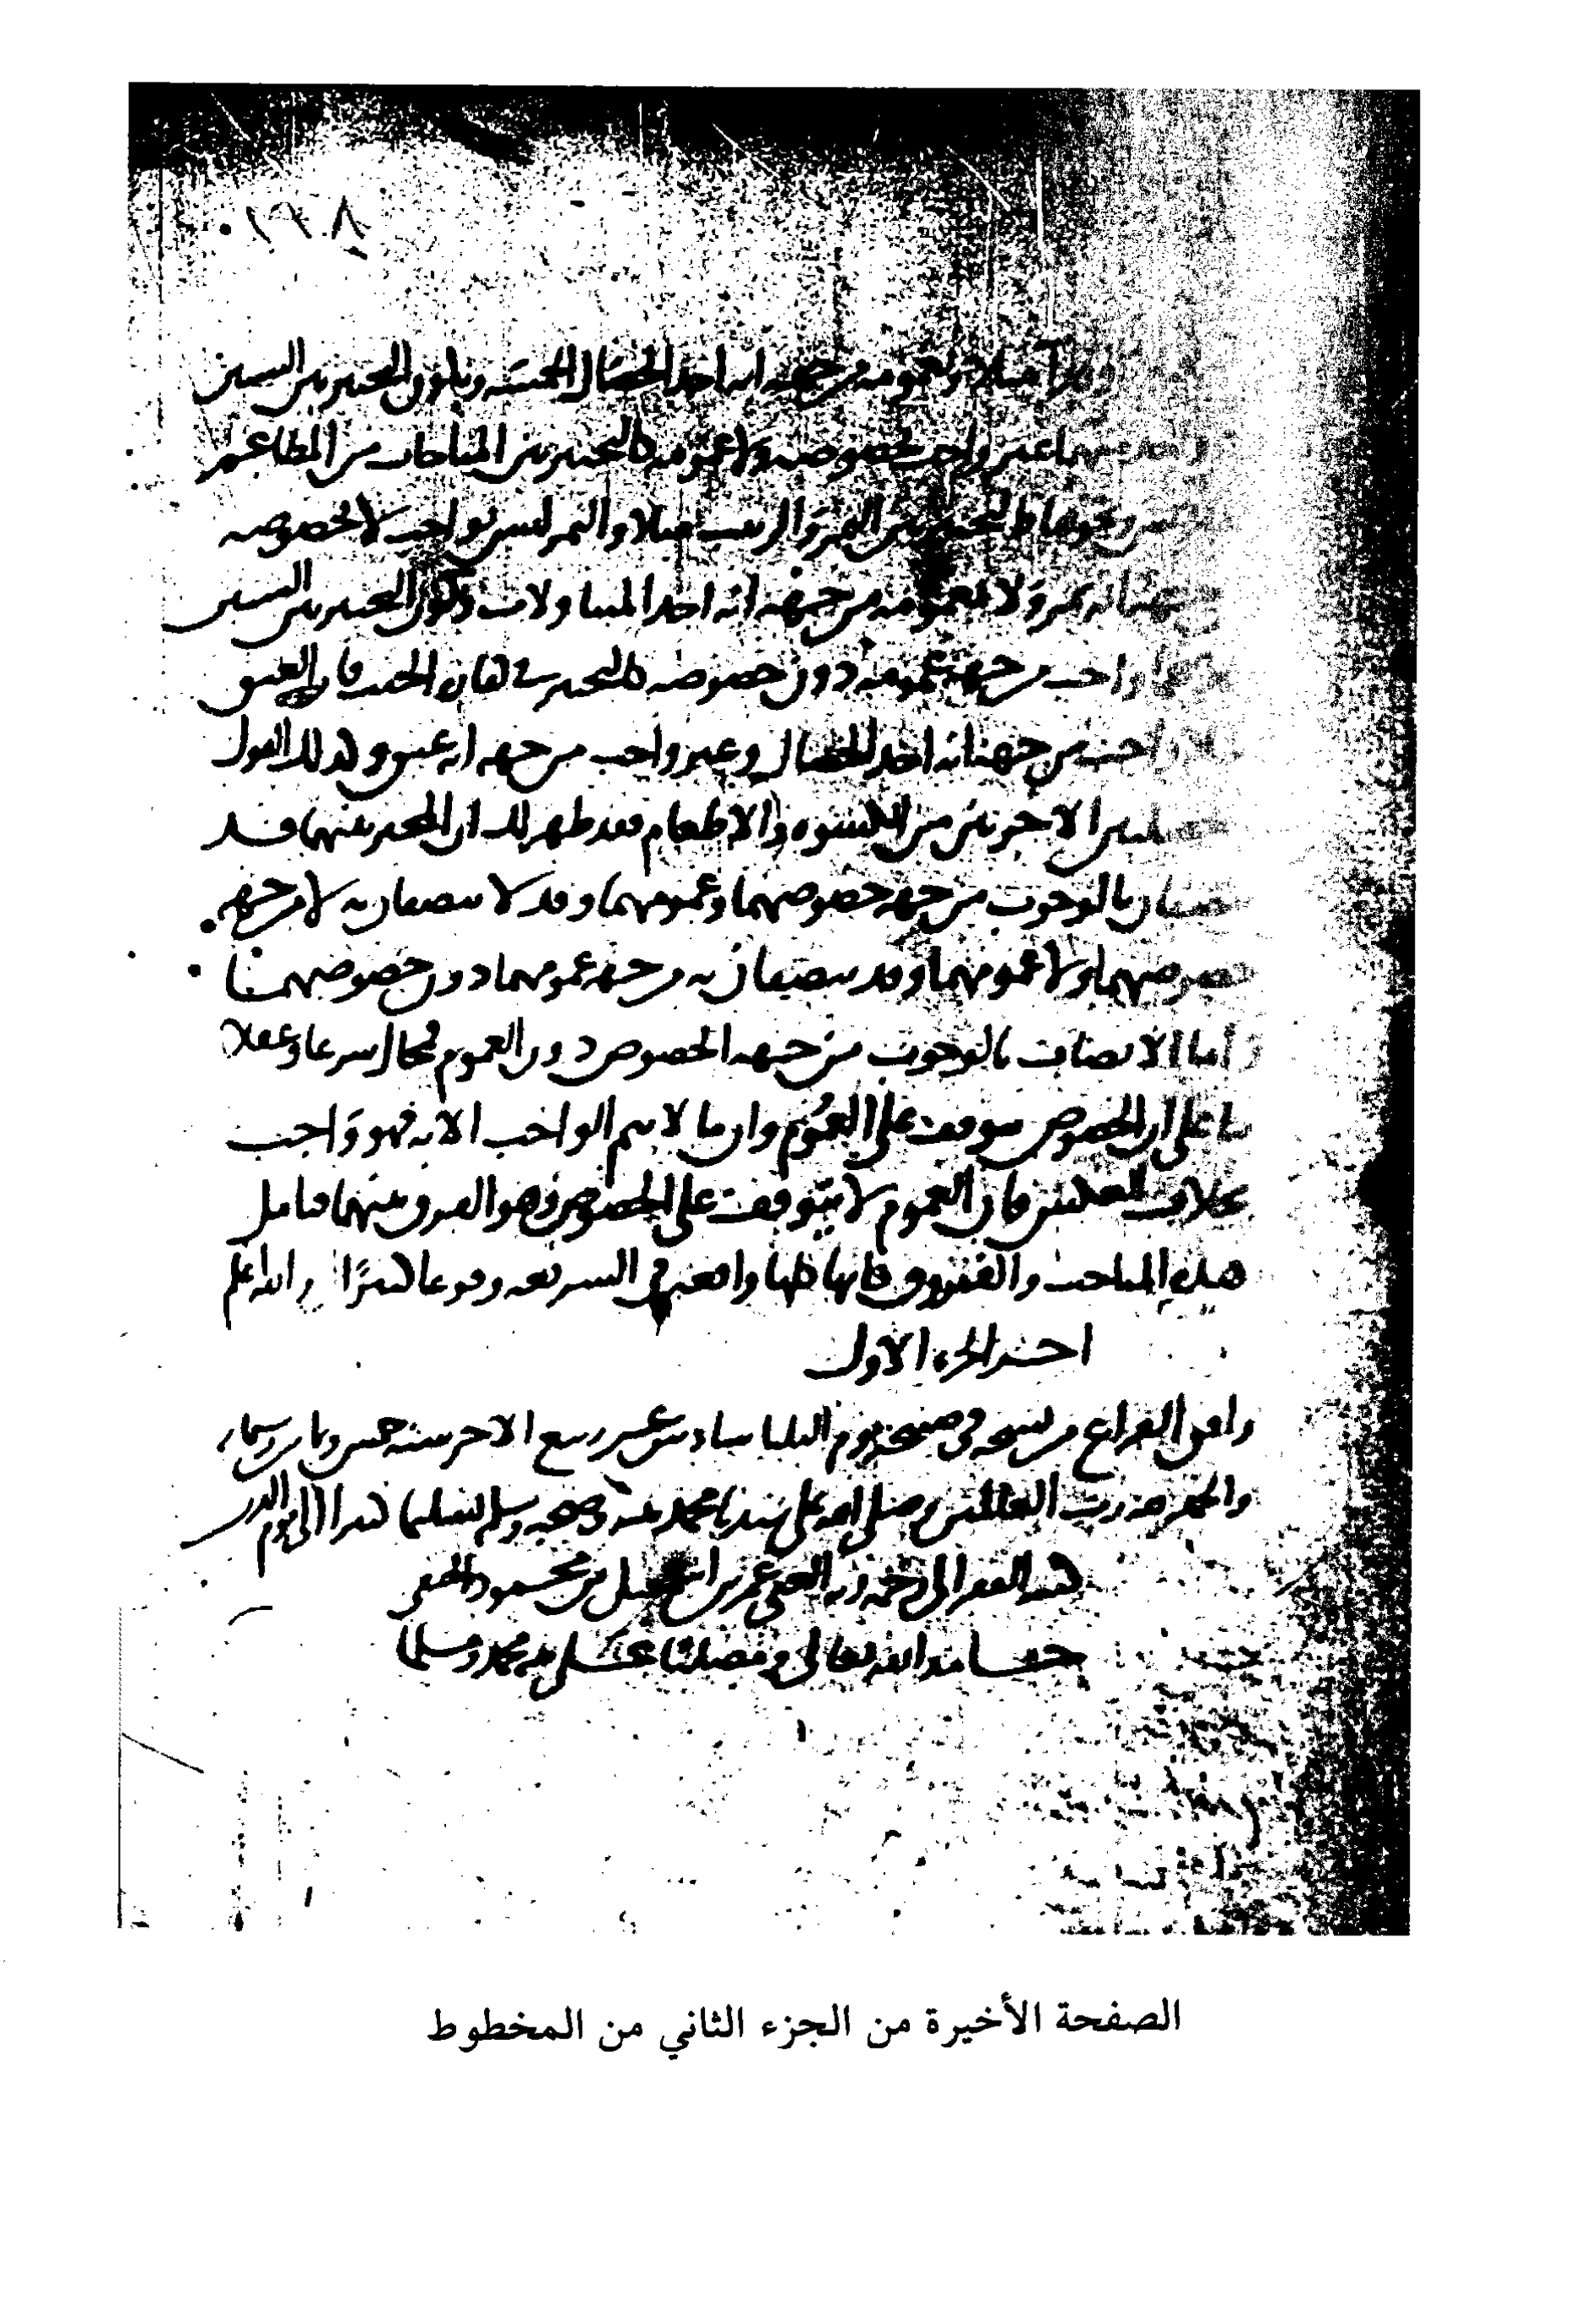 ١٩٨
مثلا ولعمومه من جهه انه احد الخصال الخمسه ويكون التخيير بين الشيئين
واحد منهما غير واجب لخصوصه ولا عمومه كالتخيير بين المباحات من المطاعم
ونحوها كالتخيير بين التمر والزبيب مثلا والتمر ليس بواجب لا لخصوصه
انه تمر ولا لعمومه من جهه انه احد المتناولات ويكون التخيير بين الشيئين
واجب من جهه عمومه دون خصوصه كالتخيير في كفاره الحنث فان العتق
واجب من جهه انه احد الخصال وغير واجب من جهه انه عتق وكذلك القول
الاخريين من الكسوه والاطعام فقد ظهر لك ان المخير بينهما قد
يتصفان بالوجوب من جهه خصوصهما وعمومهما وقد لا يتصفان به لا من جهه
خصوصهما ولا عمومهما وقد يتصفان به من جهه عمومهما دون خصوصهما
اما الاتصاف بالوجوب من جهه الخصوص دون العموم فمحال شرعا وعقلا
بنا على ان الخصوص يتوقف على العموم وان ما لا يتم الواجب الا به فهو واجب
بخلاف العكس فان العموم لا يتوقف على الخصوص فهو الفرق بينهما فتامل
هذه المباحث والفروق فانها كلها واقعه في الشريعه وقوعا كثيرًا والله اعلم
اخر الجزء الاول
وافق الفراغ من نسخه في صبيحه يوم الثلثا سادس عشر ربيع الاخر سنه خمس
والحمد لله رب العالمين وصلى الله على سيدنا محمد وصحبه وسلم تسليما كثيرا الى يوم الدين
كتبه الفقير الى رحمه ربه الغني عمر بن اسمعيل بن محمود الحنفي
حامدا لله تعالى ومصليا على محمد ومسلما
الصفحة الأخيرة من الجزء الثاني من المخطوط